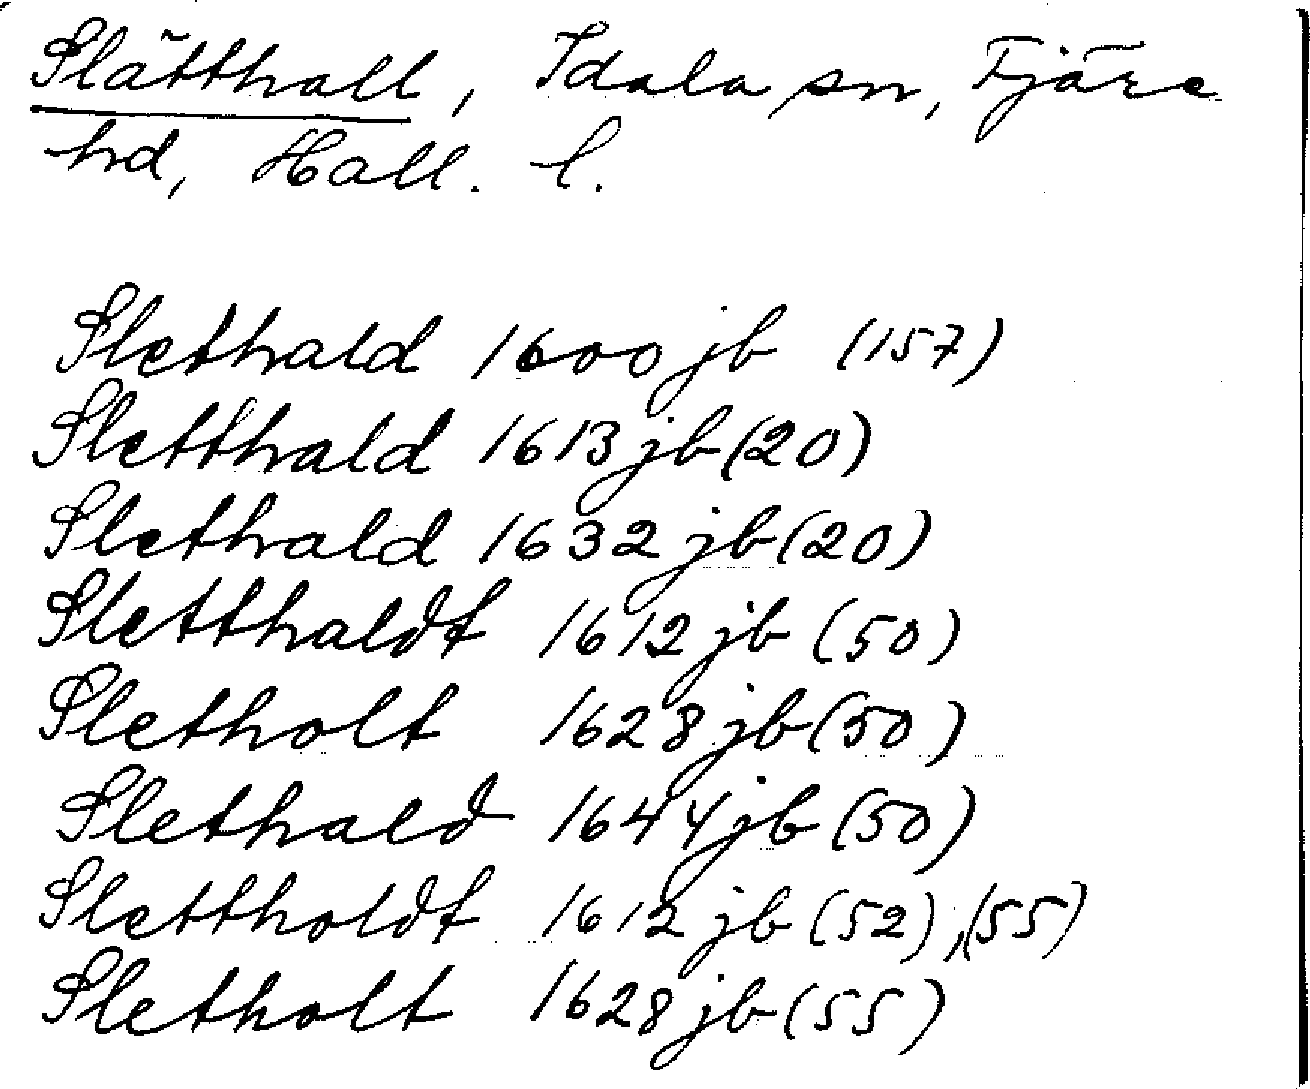 Slätthall, Idala sn, Fjäre
hd, Hall. l.
Slethald 1600 jb (157)
Sletthald 1613 jb (20)
Slethald 1632 jb (20)
Sletthaldt 1612 jb (50)
Sletholt 1628 jb (50)
Slethald 1644 jb (50)
Slettholdt 1612 jb (52), (55)
Sletholt 1628 jb (55)